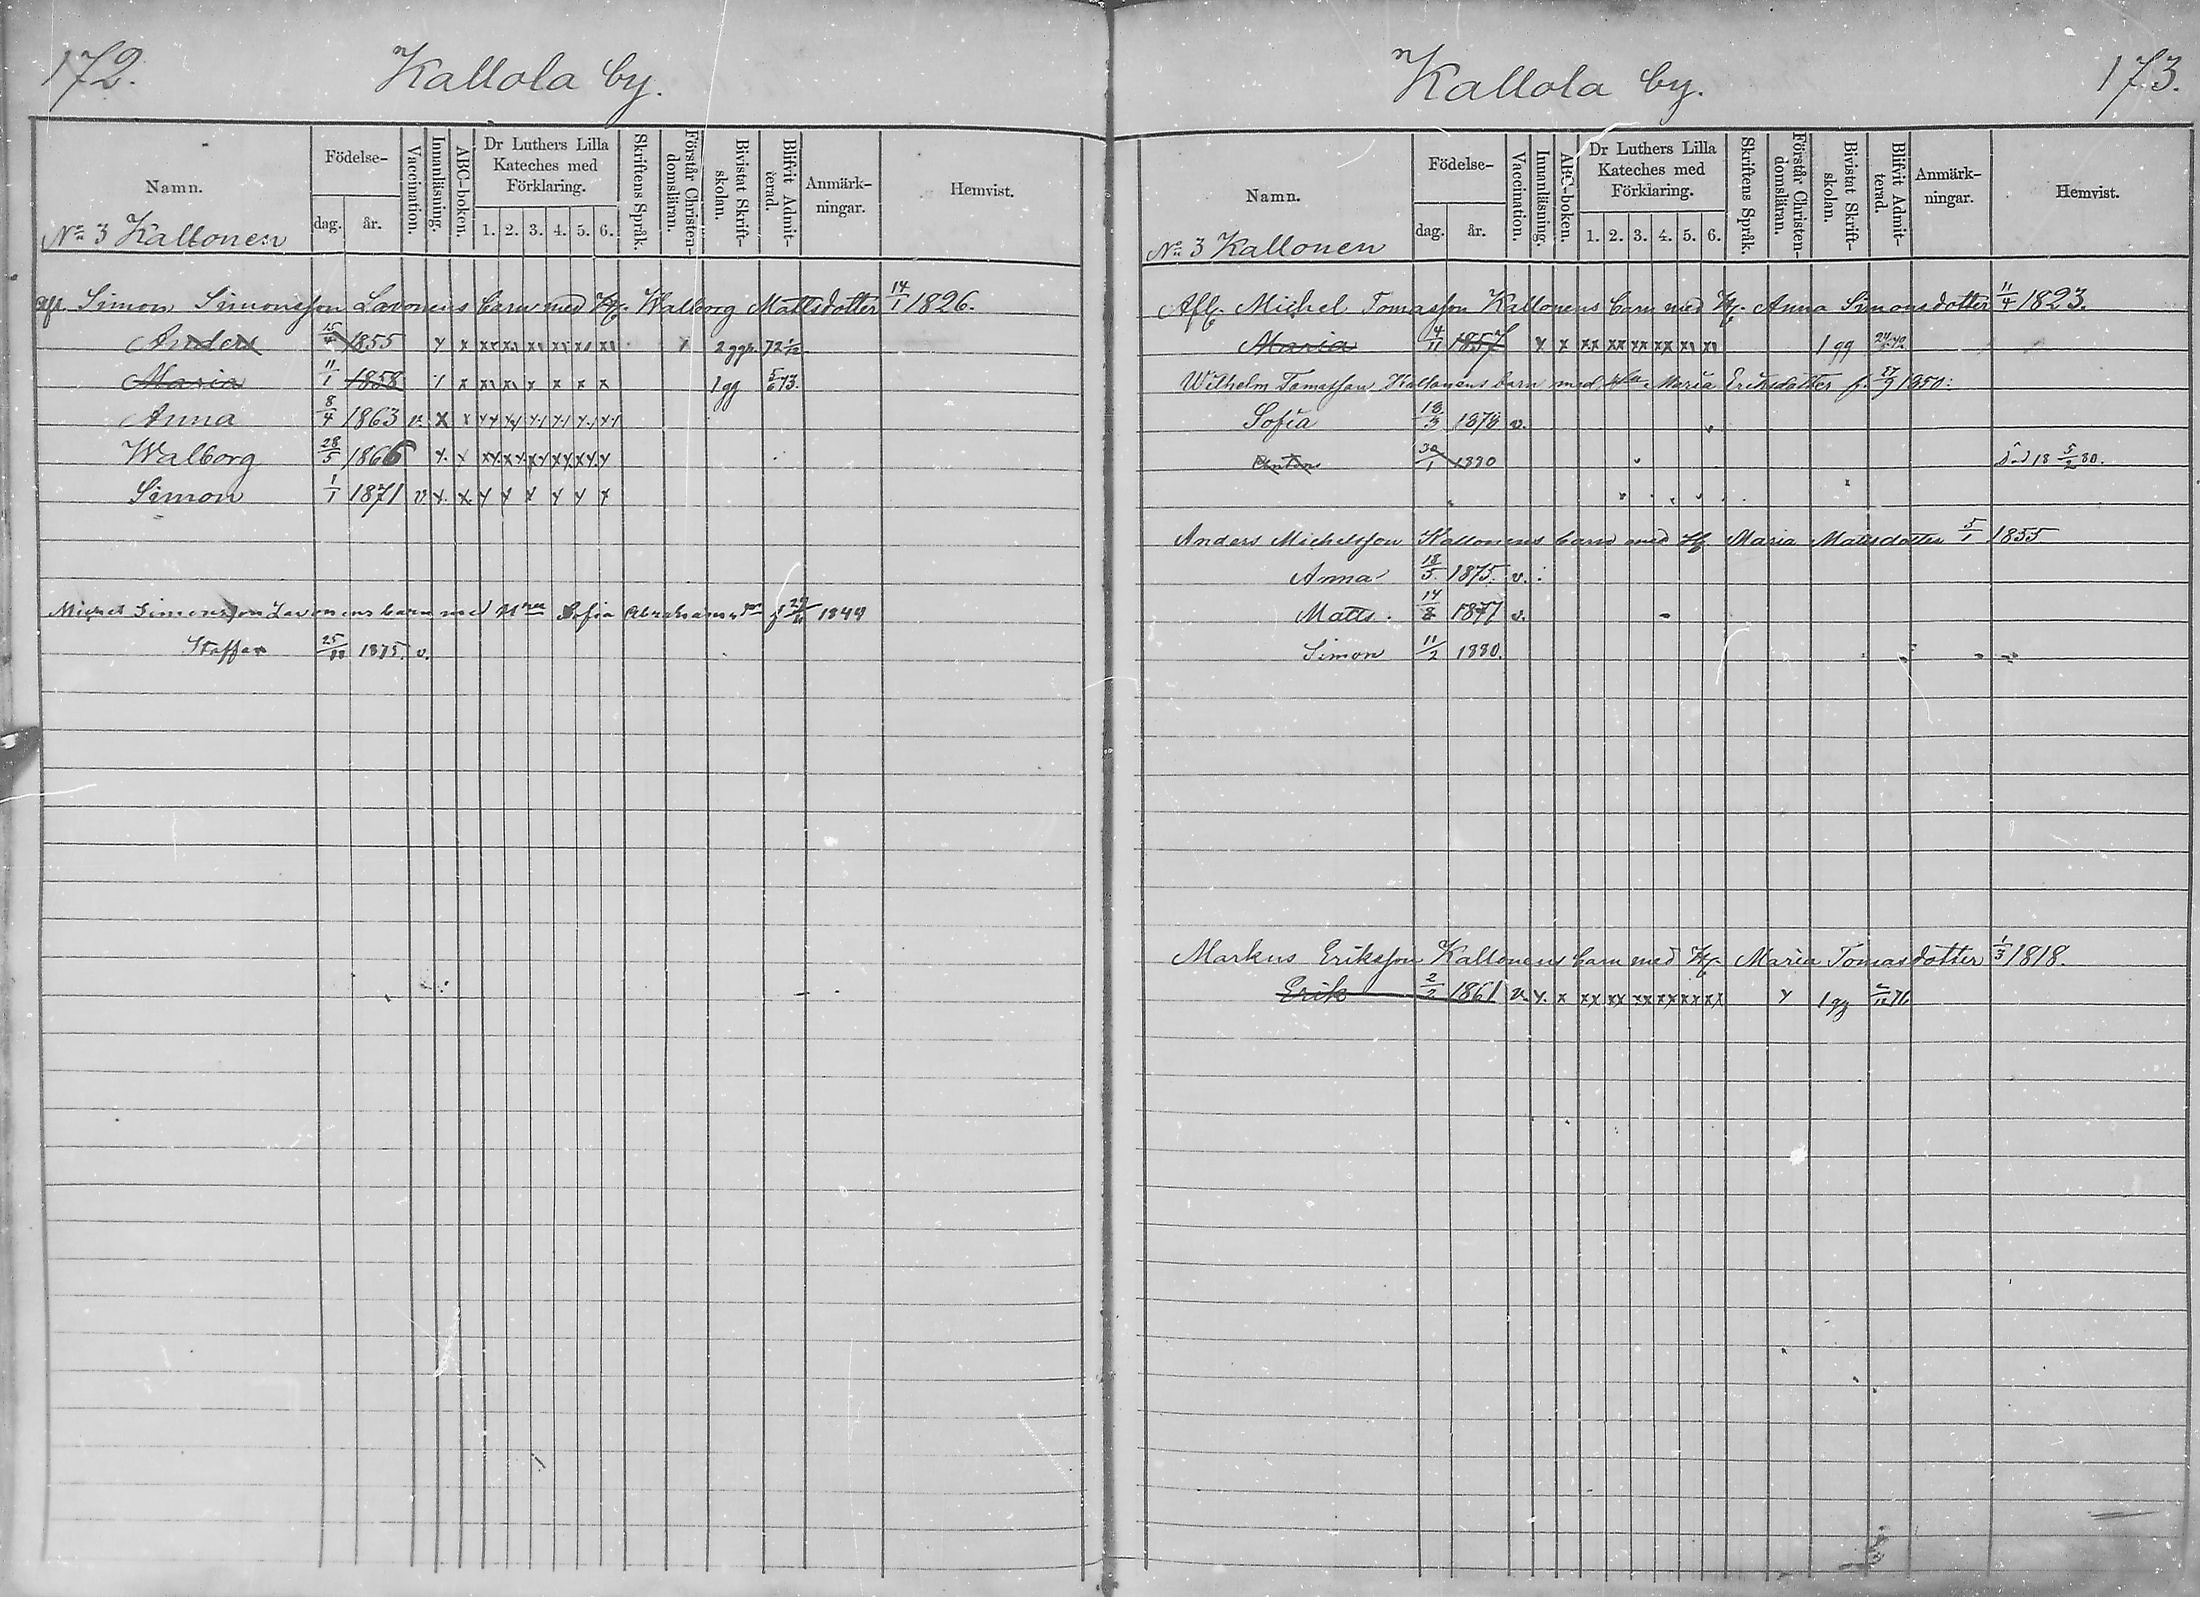 172.
Kallola by.
Namn.
Födelse-
dag. år.
Vaccination.
Innanläsning.
ABC-boken.
Dr Luthers Lilla Kateches med Förklaring.
1. 2. 3. 4. 5. 6.
Skriftens Språk.
Förstår Christen-domsläran.
Bivistat Skrift-skolan.
Blifvit Admit-terad.
Anmärk-ningar.
Hemvist.
No 3 Kallonen
Afl. Simon Simonsson Lavonens barn med H. Walborg Mattsdotter 14/1 1826.
Anders 15/4 1855 x x xx xx xx xx xx xx x 2 ggr
Maria 11/1 1858 x x xx xx x x x x 1 gg 5/6 73.
Anna 8/4 1863 v. x x xx xx xx xx xx xx
Walborg 28/5 1866 x. x xx xx xx xx xx x
Simon 1/1 1871 v x. x. x x x x x x
Michel Simonsson Lavonens barn med Sofia Abrahamsdr f 1844
Staffan 25/ 1875. v.
173.
Kallola by.
Namn.
Födelse-
dag. år.
Vaccination.
Innanläsning.
ABC-boken.
Dr Luthers Lilla Kateches med Förklaring.
1. 2. 3. 4. 5. 6.
Skriftens Språk.
Förstår Christen-domsläran.
Bivistat Skrift-skolan.
Blifvit Admit-terad.
Anmärk-ningar.
Hemvist.
No 3 Kallonen
Afl. Michel Tomasson Kallonens barn med H. Anna Simonsdotter 11/4 1823.
Maria 4/11 1857 x x xx xx xx xx xx xx 1 gg
Wilhelm Tomasson Kallonens barn med Maria Eriksdotter f. 27/9 1850.
Sofia 18/3 1878 v.
Anton 30/1 1880 död 18 5/2 80.
Anders Michelsson Kallonens barn med H. Maria Mattsdotter 5/1 1855
Anna 18/5 1875. v.
Matts 14/8 1877 v.
Simon 11/2 1880.
Markus Eriksson Kallonens barn med H. Maria Tomasdotter 1/3 1818.
Erik 2/2 1861 v. x. x xx xx xx xx xx xx x 1 gg 76